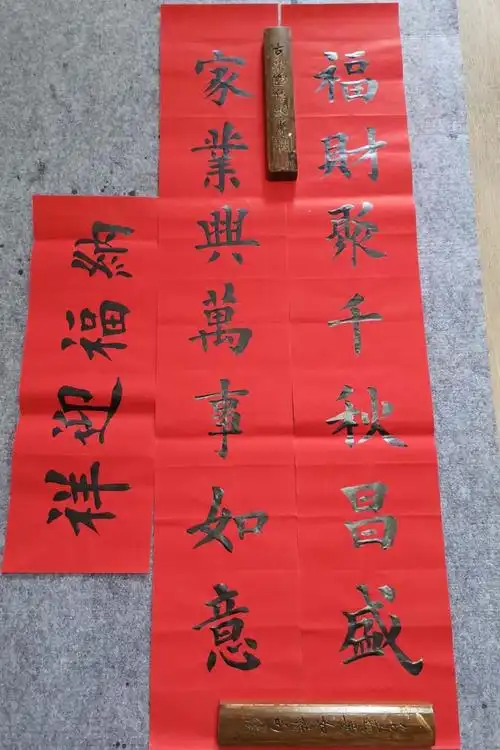 福財聚千秋昌盛
家業興萬事如意
納福迎祥